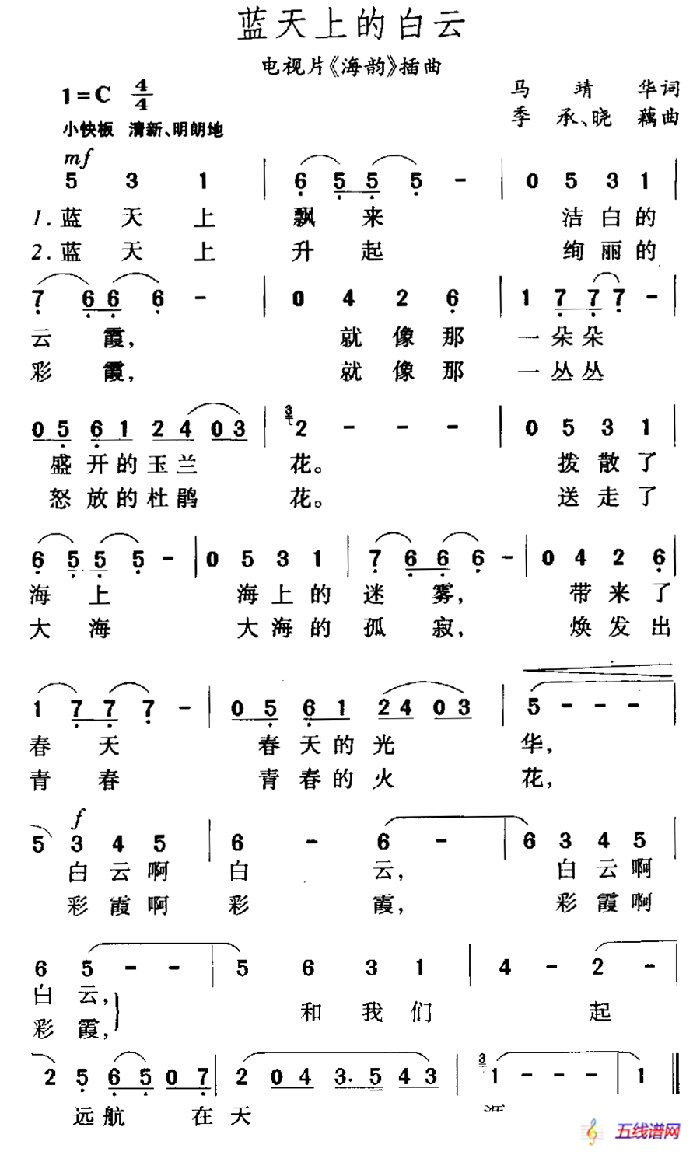 蓝天上的白云
电视片《海韵》插曲
1=C 4/4
马靖华词
季承、晓藕曲
小快板 清新、明朗地
mf
5 3 1 | 6 5 5 5 - | 0 5 3 1 |
1.蓝天上 飘来 洁白的
2.蓝天上 升起 绚丽的
7 6 6 6 - | 0 4 2 6 | 1 7 7 7 - |
云霞, 就像那 一朵朵
彩霞, 就像那 一丛丛
0 5 6 1 2 4 0 3 | 3 2 - - - | 0 5 3 1 |
盛开的玉兰 花。 拨散了
怒放的杜鹃 花。 送走了
6 5 5 5 - | 0 5 3 1 | 7 6 6 6 - | 0 4 2 6 |
海上 海上的 迷雾, 带来了
大海 大海的 孤寂, 焕发出
1 7 7 7 - | 0 5 6 1 2 4 0 3 | 5 - - - |
春天 春天的光 华,
青春 青春的火 花,
f
5 3 4 5 | 6 - 6 - | 6 3 4 5 |
白云啊 白云, 白云啊
彩霞啊 彩霞, 彩霞啊
6 5 - - | 5 6 3 1 | 4 - 2 - |
白云, 和我们 起
彩霞,
2 5 6 5 0 7 | 2 0 4 3. 5 4 3 | 3 1 - - 1 ‖
远航 在天
五线谱网